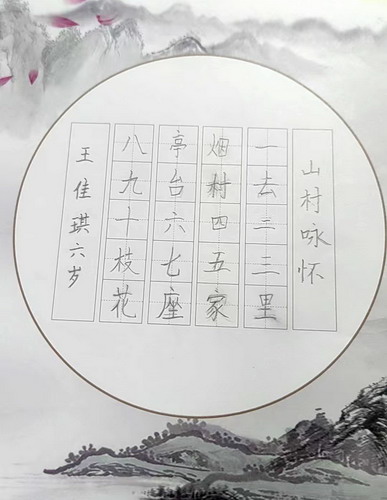 山村咏怀
一去二三里
烟村四五家
亭台六七座
八九十枝花
王佳琪六岁